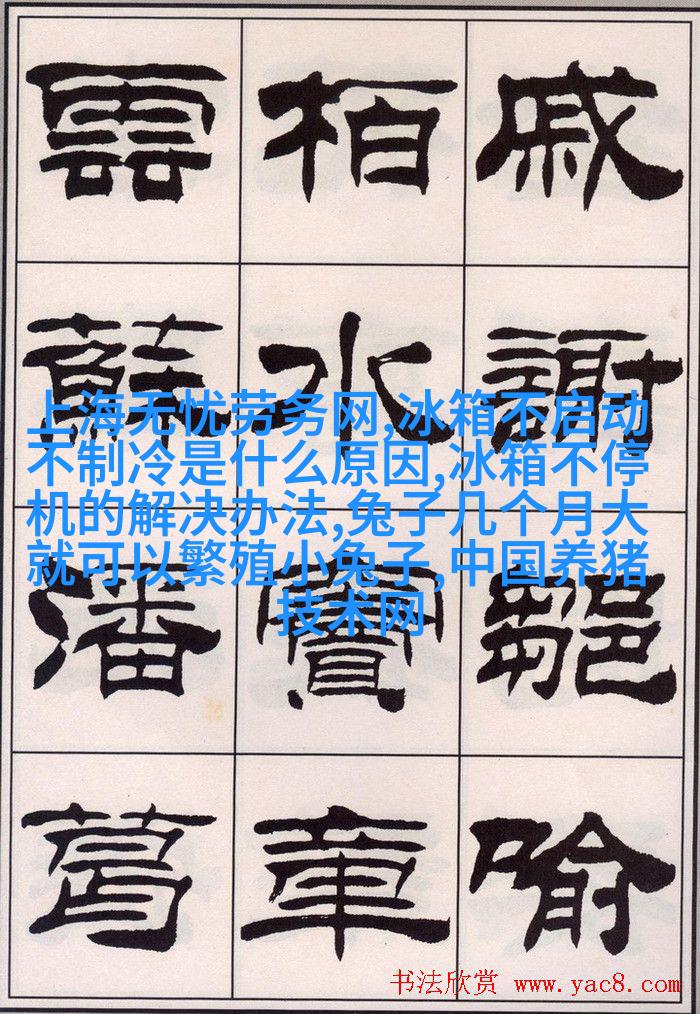 戚謝鄒喻
柏水竇章
雲蘇潘葛
上海无忧劳务网,冰箱不启动
不制冷是什么原因,冰箱不停
机的解决办法,兔子几个月大
就可以繁殖小兔子,中国养猪
技术网
书法欣赏 www.yac8.com